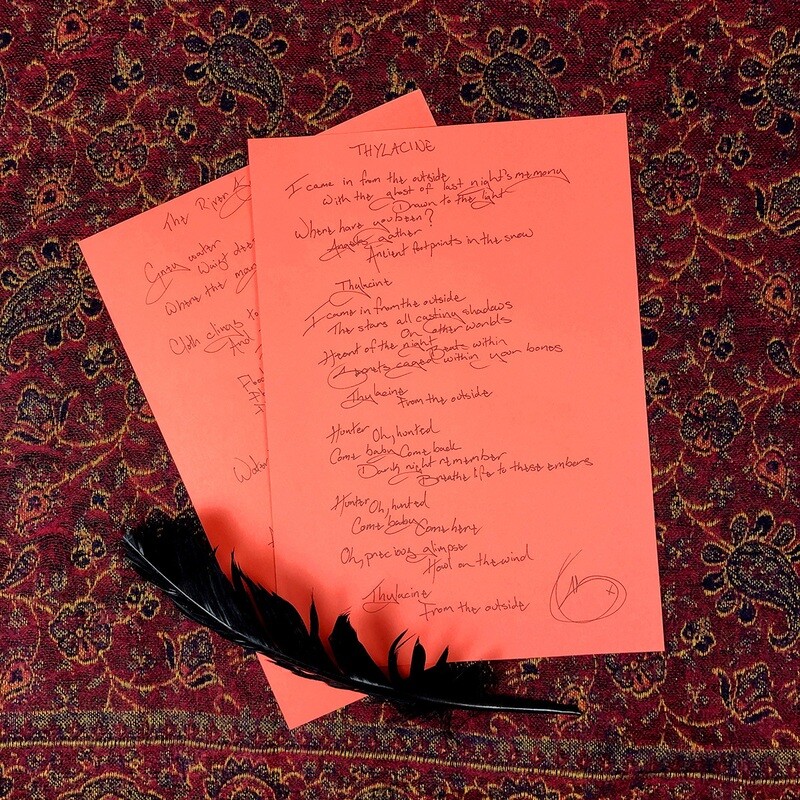 THYLACINE
I came in from the outside
With the ghost of last night's memory
Drawn to the light
Where have you been?
Angels gather
Ancient footprints in the snow
Thylacine
I came in from the outside
The stars all casting shadows
On other worlds
Heart of the night Beats within
Secrets caged within your bones
Thylacine
From the outside
Hunter Oh, hunted
Come baby Come back
Dark night remember
Breathe life to these embers
Hunter Oh, hunted
Come baby Come here
Oh, precious glimpse
Howl on the wind
Thylacine
From the outside
The River
Grey water
Where the
Cloth clings
And